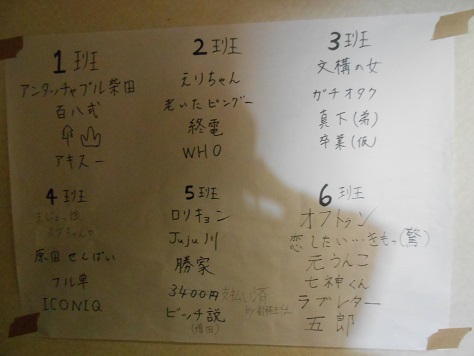 1班
アンタッチャブル柴田
百八式
アキスー
2班
えりちゃん
老いたピングー
終電
WHO
3班
文構の女
ガチオタク
真下(弟)
卒業(仮)
4班
原宿せんぱい
フル単
ICONIQ
5班
ロリキョン
Juju川
勝家
3400円支払い済
ビッチ説
6班
オフトゥン
恋したい…をもっ(驚)
元うんこ
七神くん
ラブレター
五郎